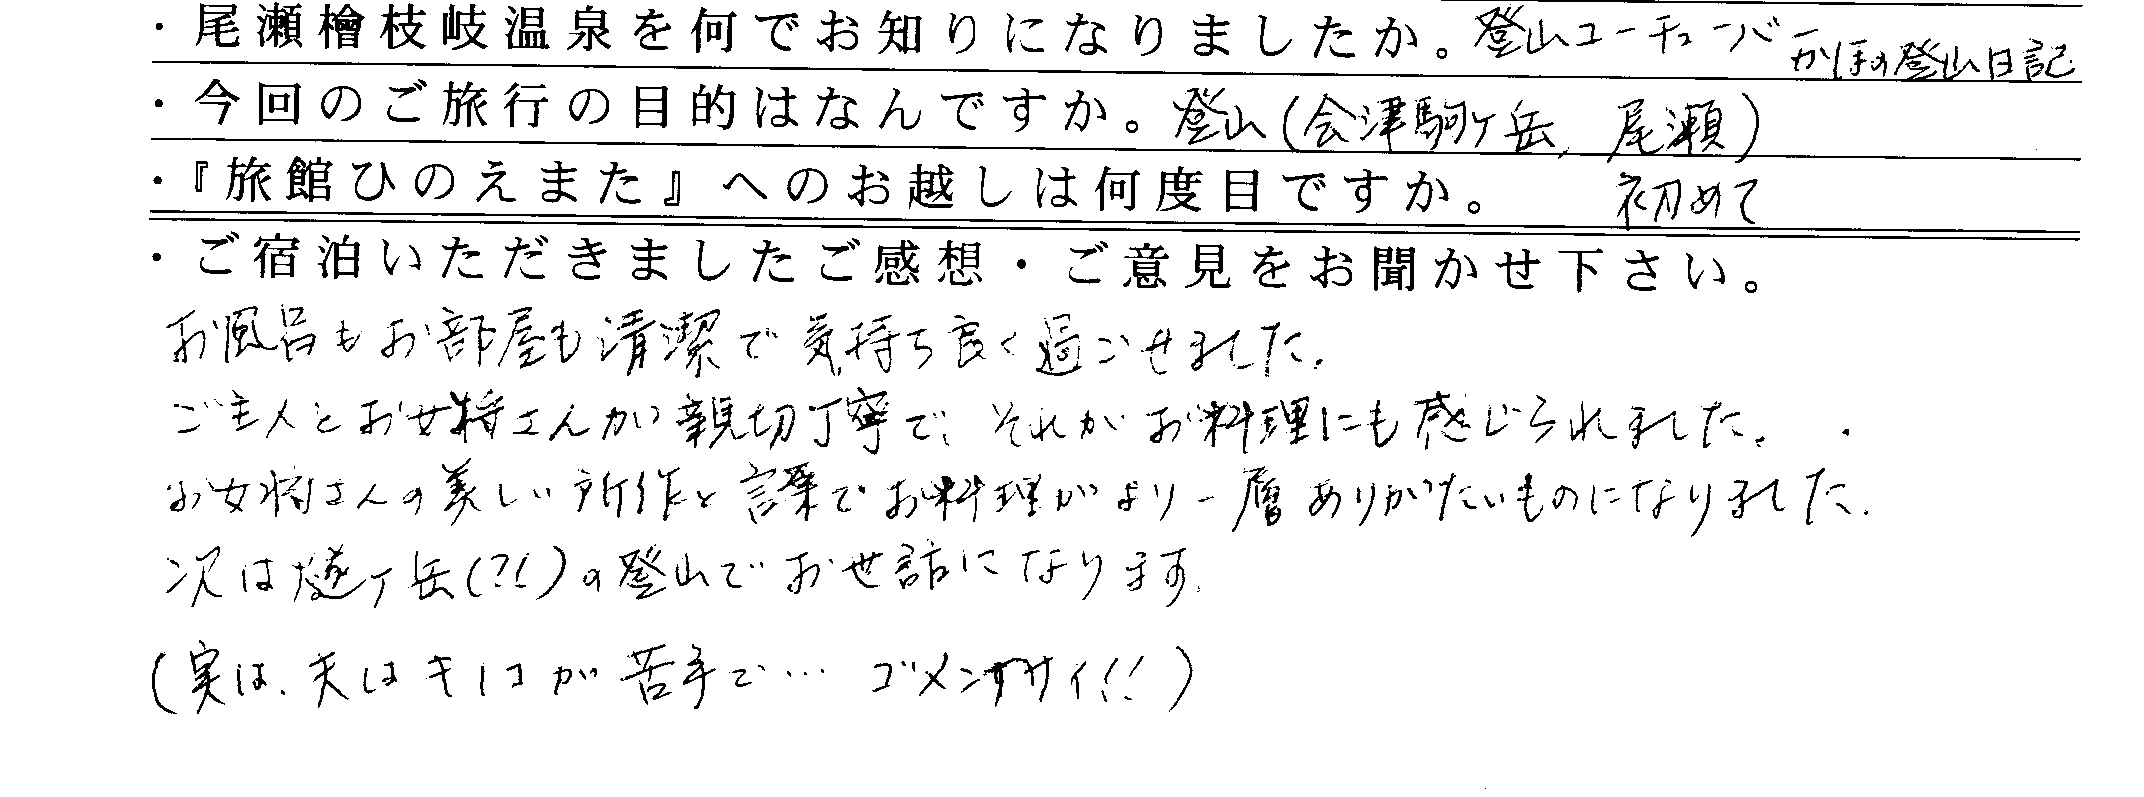 ・尾瀬檜枝岐温泉を何でお知りになりましたか。登山ユーチューバーかほの登山日記
・今回のご旅行の目的はなんですか。登山(会津駒ヶ岳, 尾瀬)
・『旅館ひのえまた』へのお越しは何度目ですか。 初めて
・ご宿泊いただきましたご感想・ご意見をお聞かせ下さい。
お風呂もお部屋も清潔で気持ち良く過ごせました。
ご主人とお女将さんが親切丁寧で、それがお料理にも感じられました。
お女将さんの美しい所作と言葉でお料理がより一層ありがたいものになりました。
次は燧ヶ岳(?!)の登山でお世話になります。
(実は、夫はキノコが苦手で… ゴメンナサイ!!)